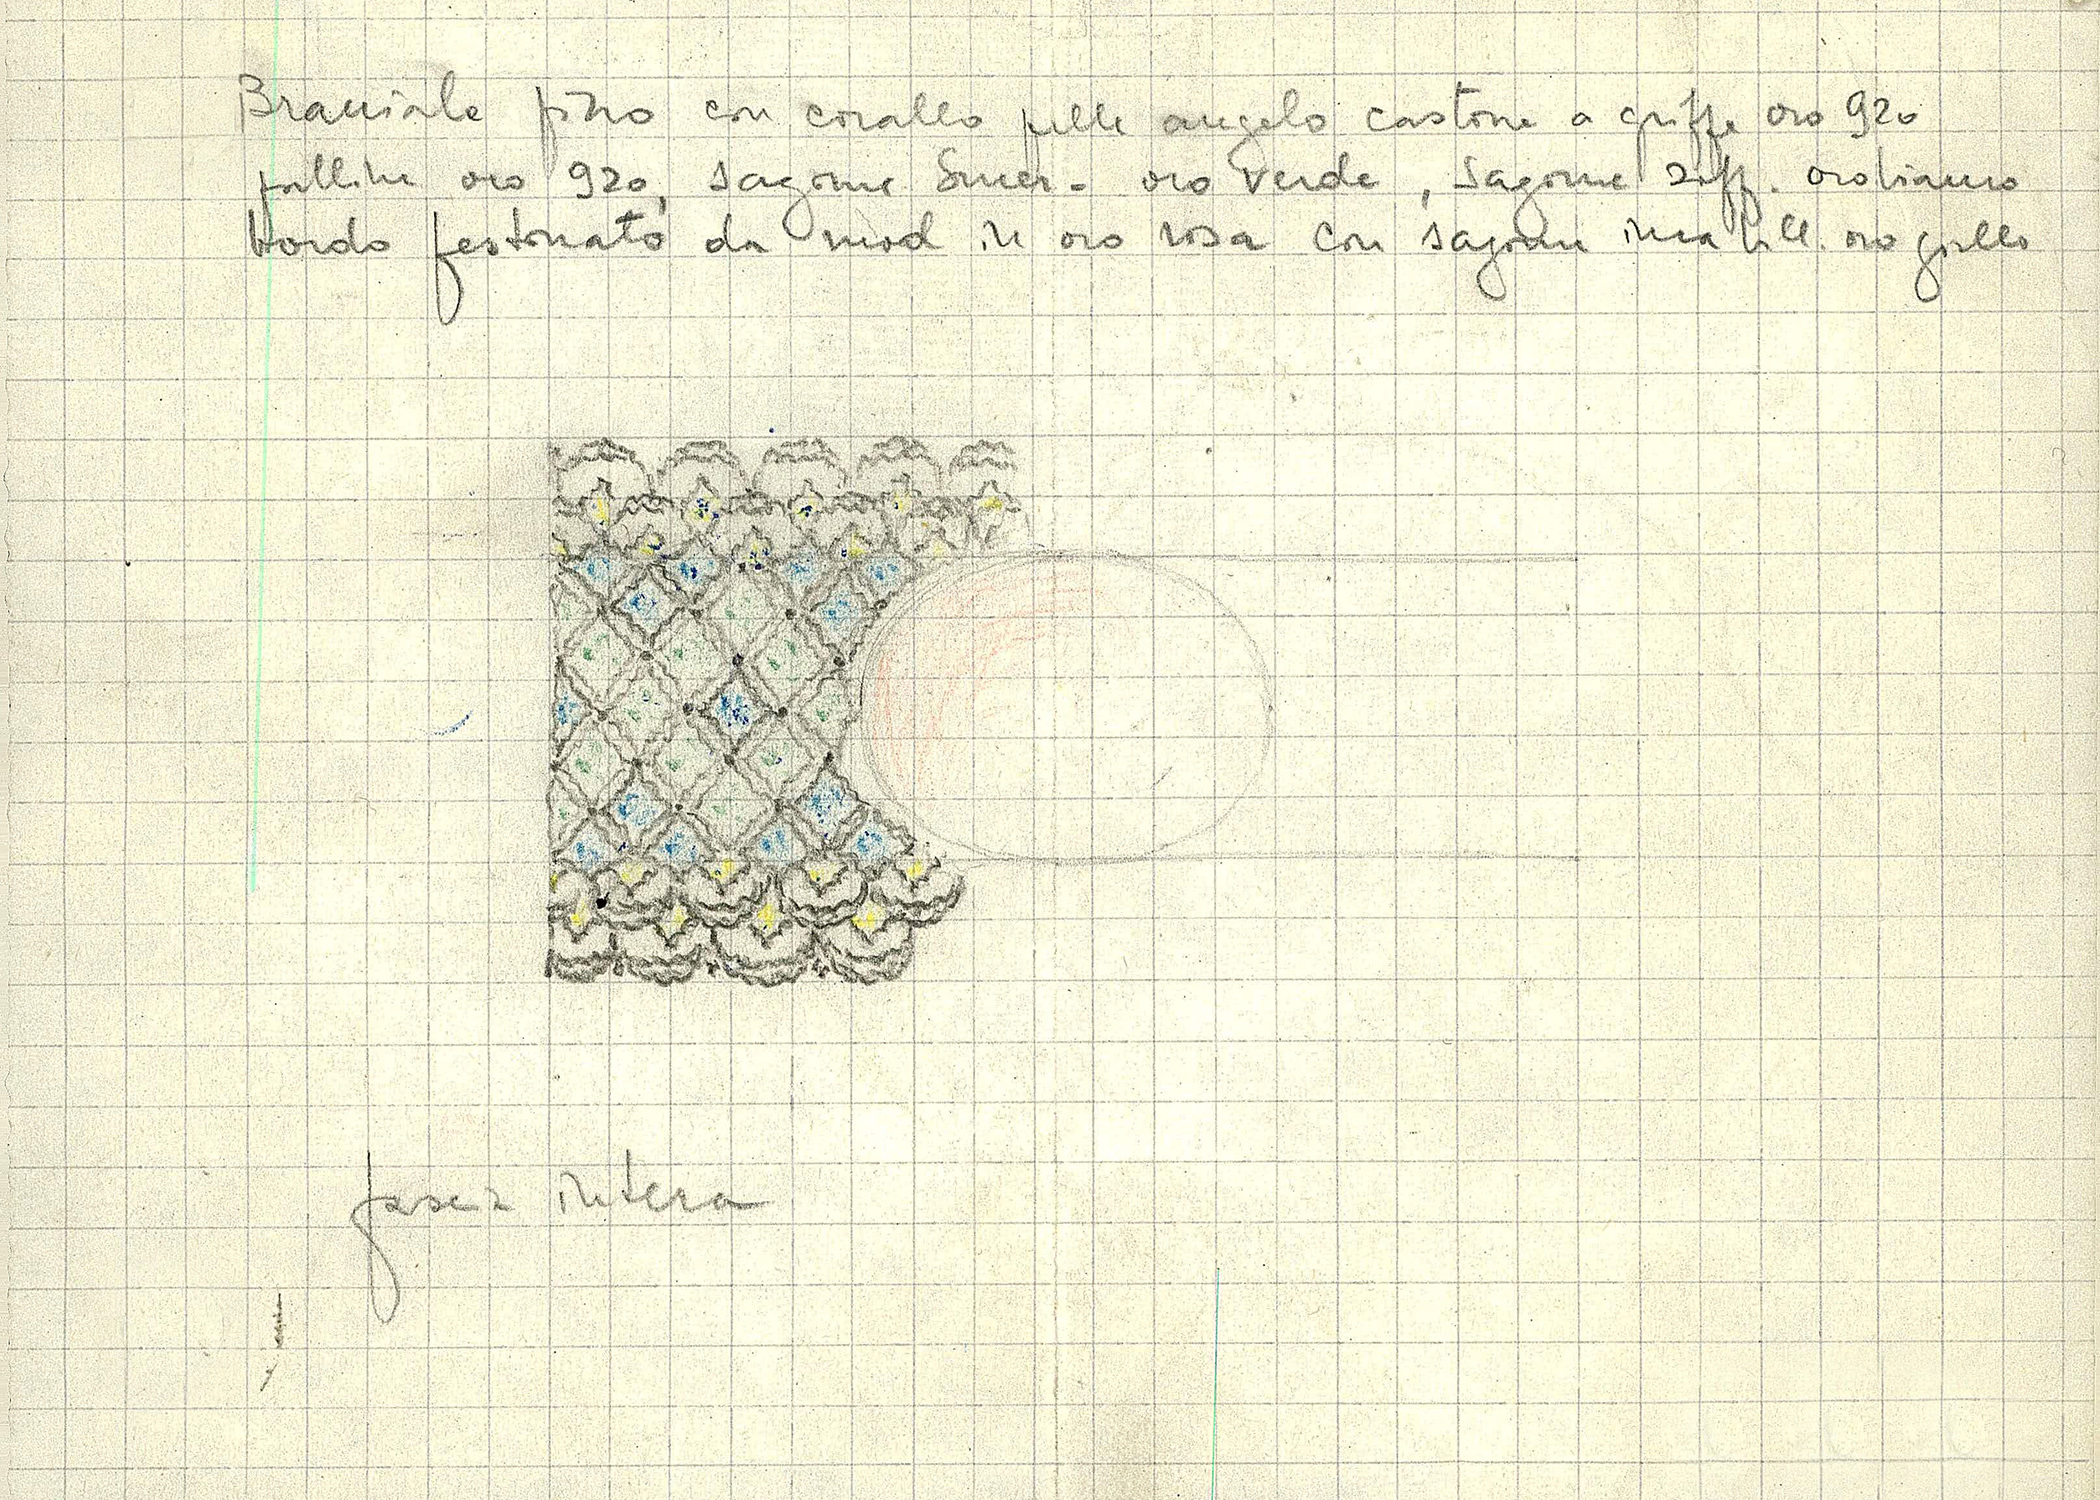 Bracciale pizzo con corallo pelle angelo castone a griffe oro 920
palline oro 920, sagome Smer. oro verde, sagome zaff. oro bianco
bordo festonato da mod in oro rosa con sagome brill. oro giallo
fascia intera